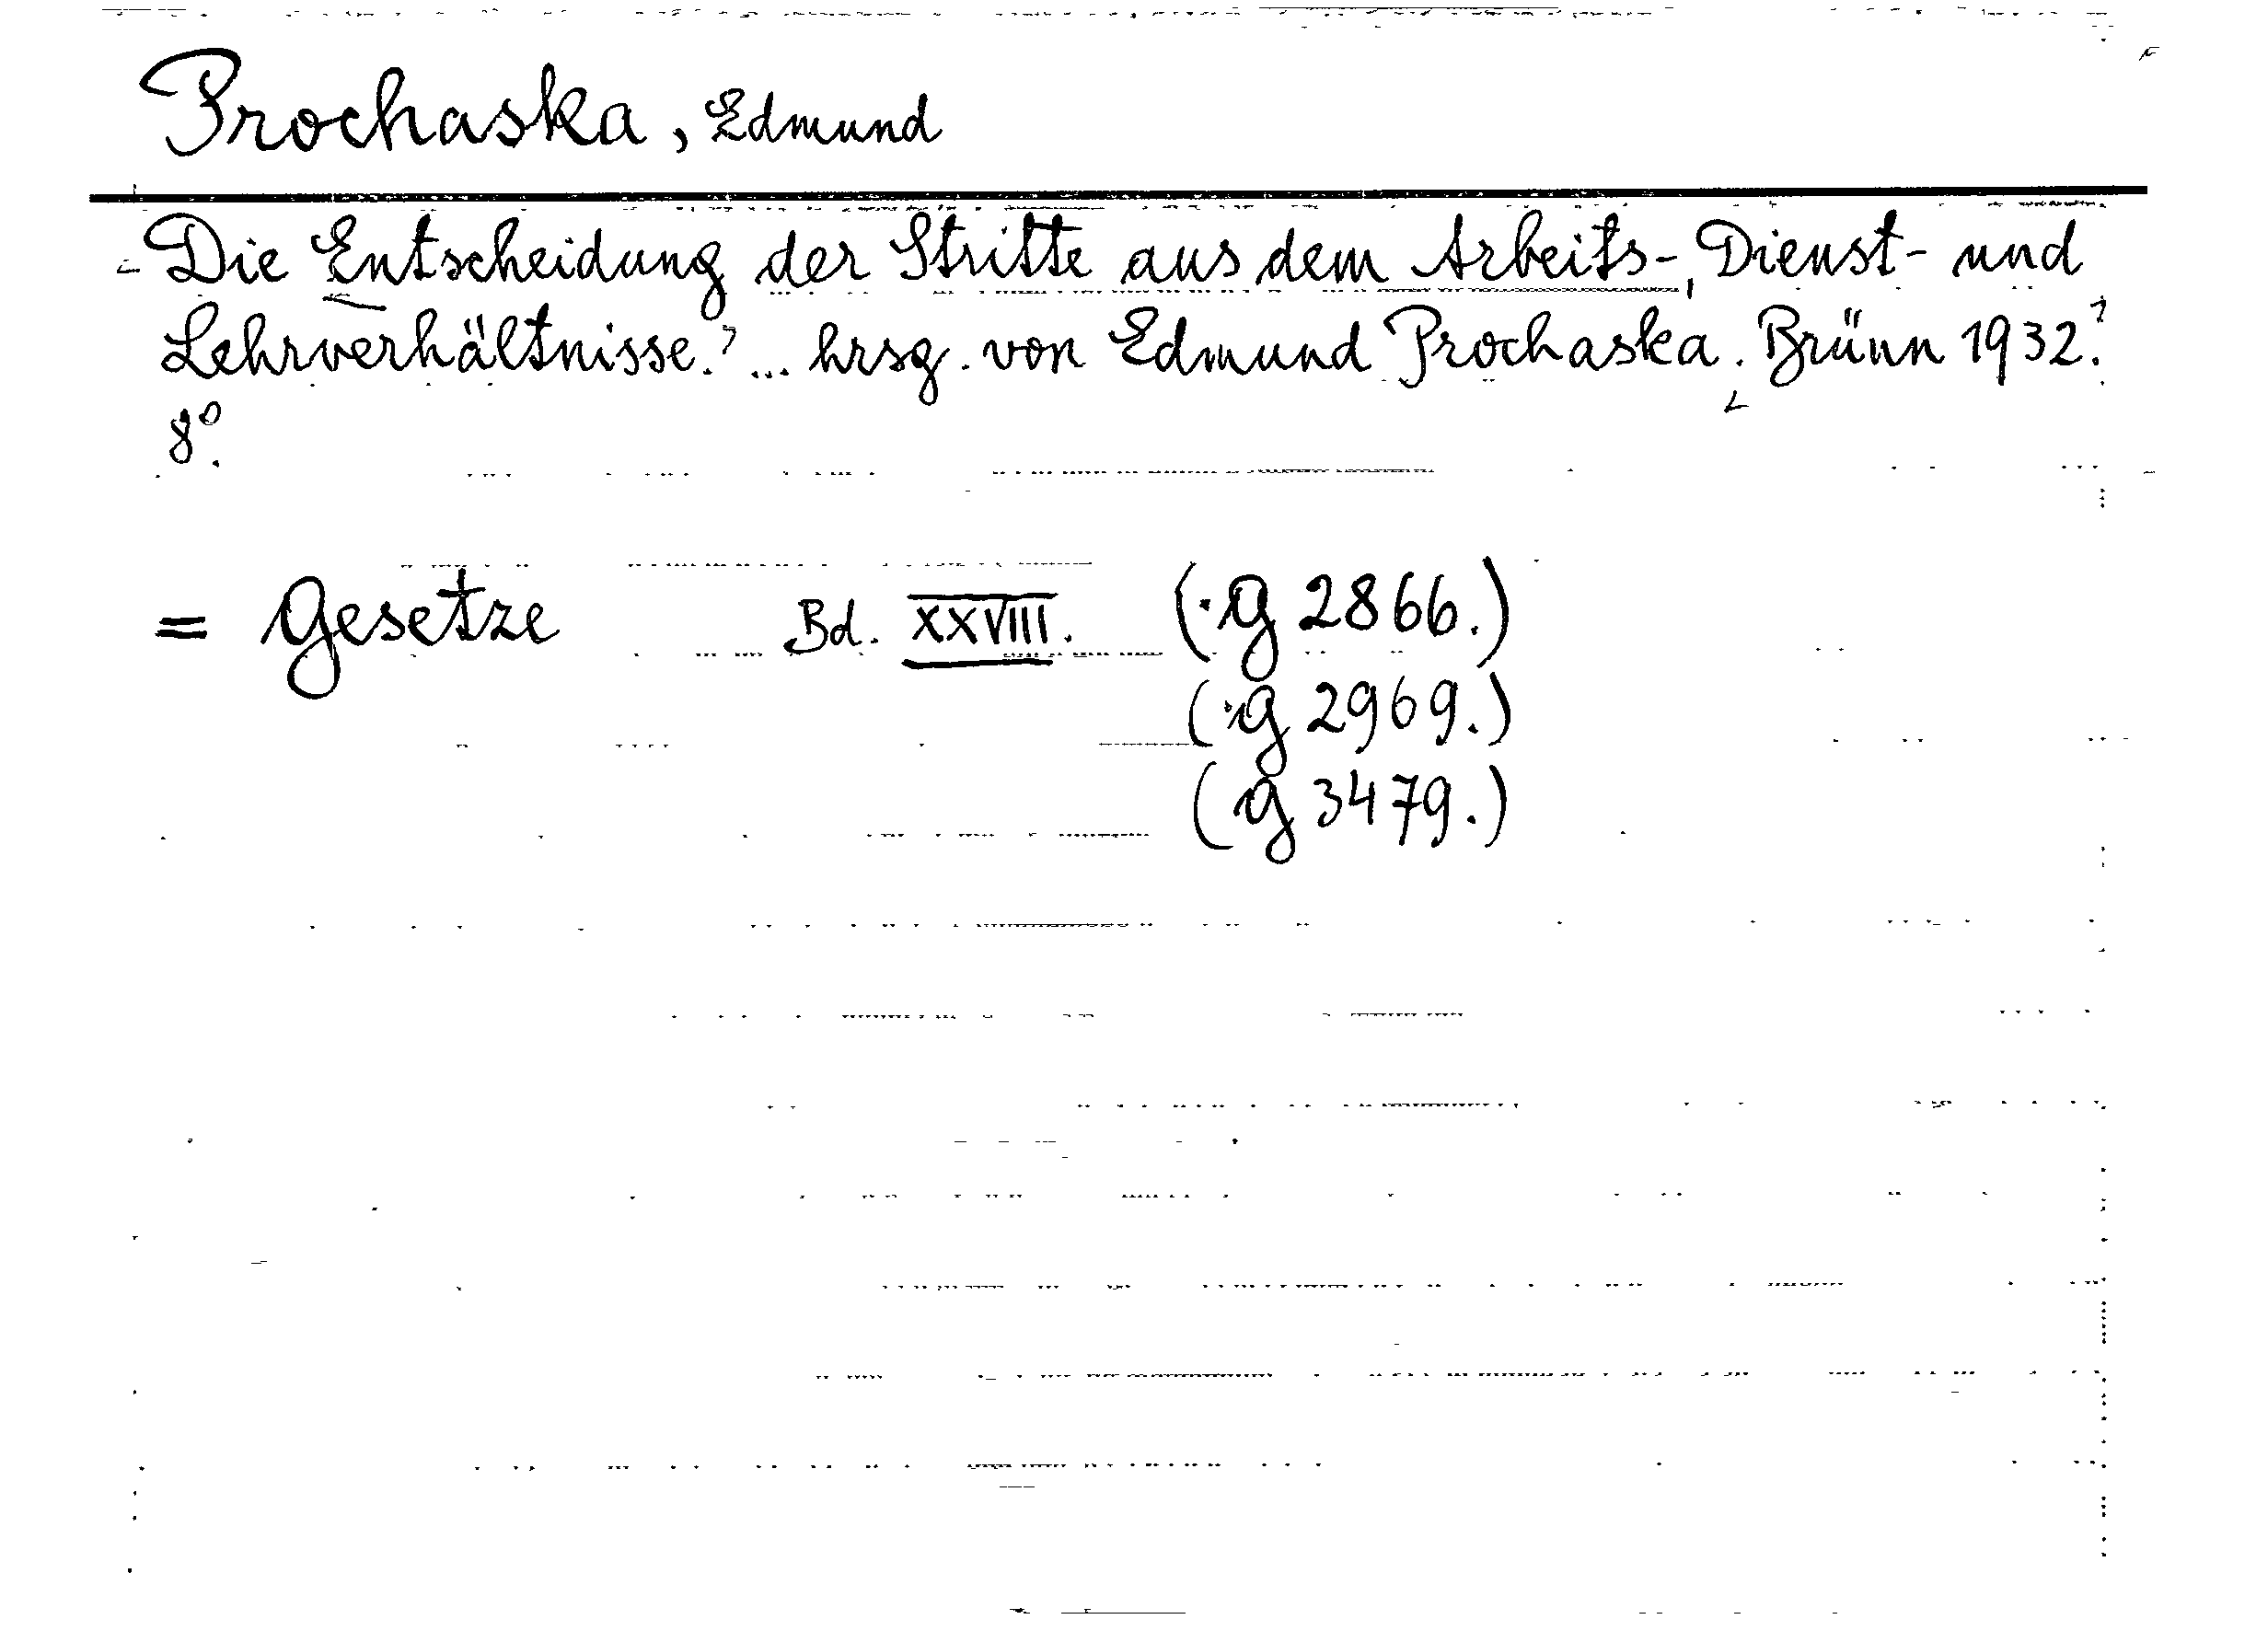 Prochaska, Edmund
Die Entscheidung der Stritte aus dem Arbeits-, Dienst- und
Lehrverhältnisse.? ... hrsg. von Edmund Prochaska. Brünn 1932.?
8º.
= Gesetze Bd. XXVIII. (·G 2866.)
(·G 2969.)
(G 3479.)